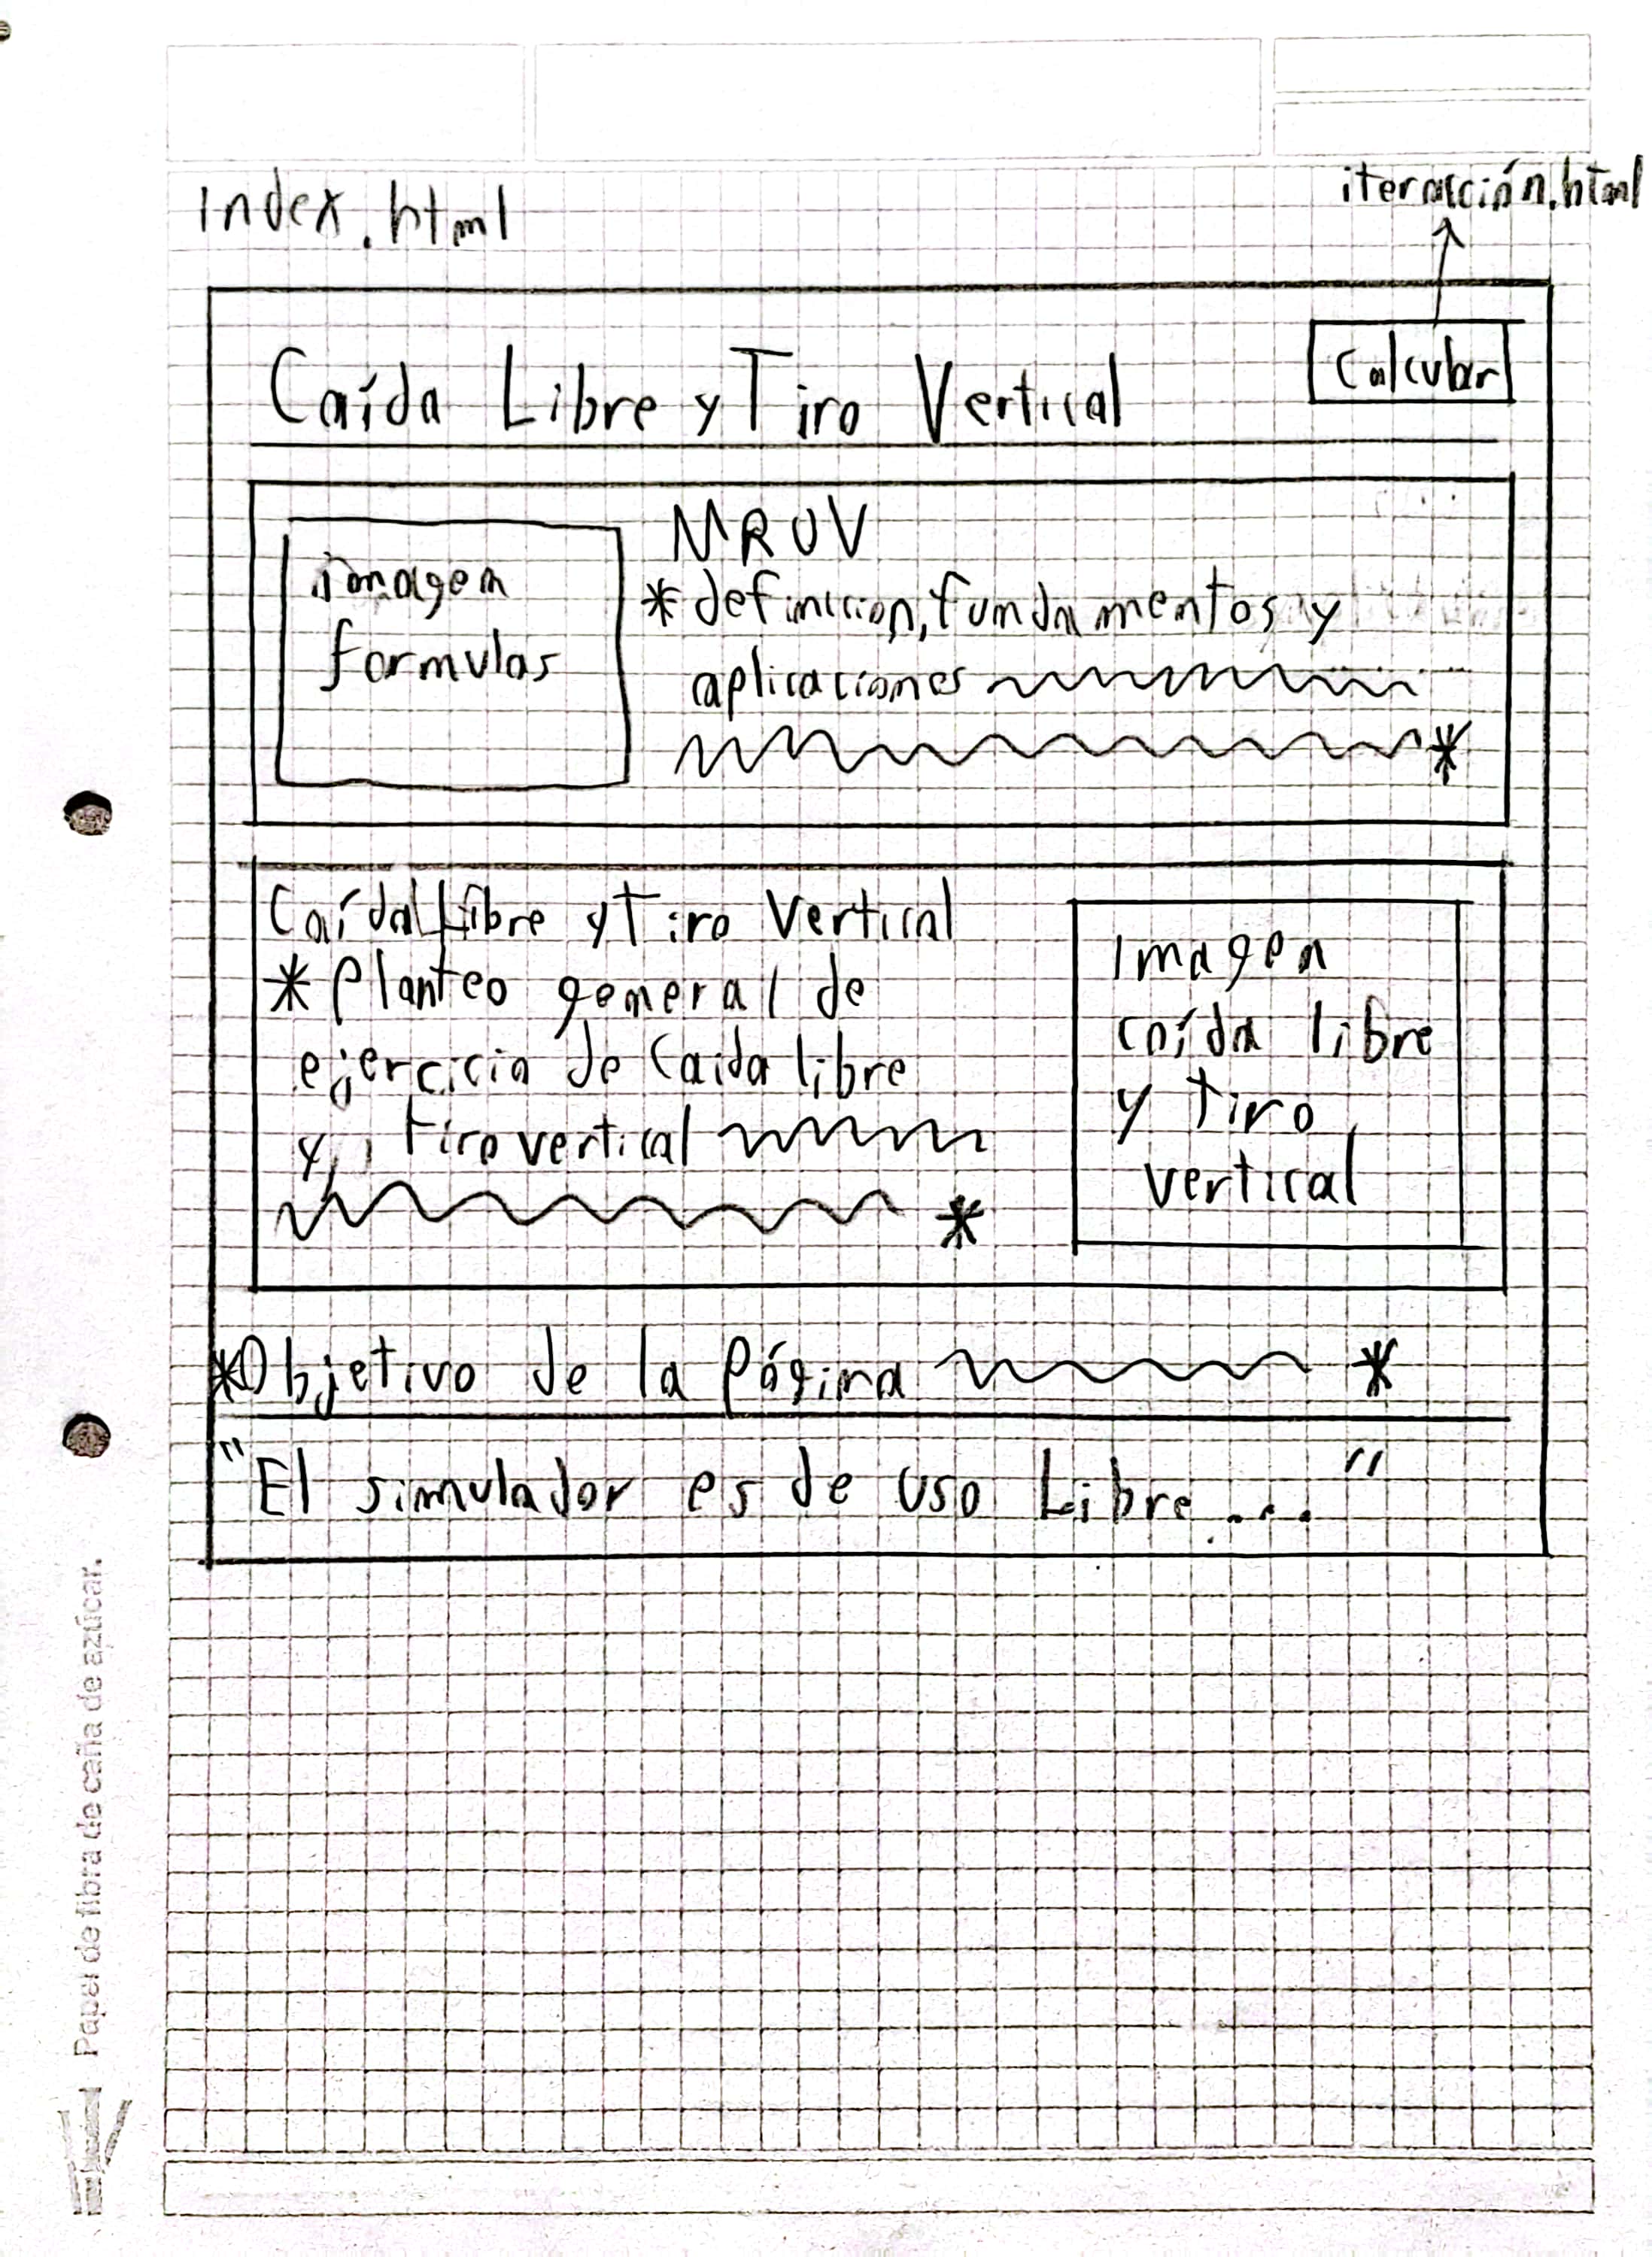 index.html
iteracción.html
Caída Libre y Tiro Vertical
Calcular
imagen
formulas
MRUV
* definicion, fundamentos y
aplicaciones
*
Caída Libre y Tiro Vertical
* Planteo general de
ejercicio de Caida libre
y tiro vertical
*
Imagen
caída libre
y tiro
vertical
*Objetivo de la Página *
"El simulador es de uso Libre..."
Papel de fibra de caña de azúcar.